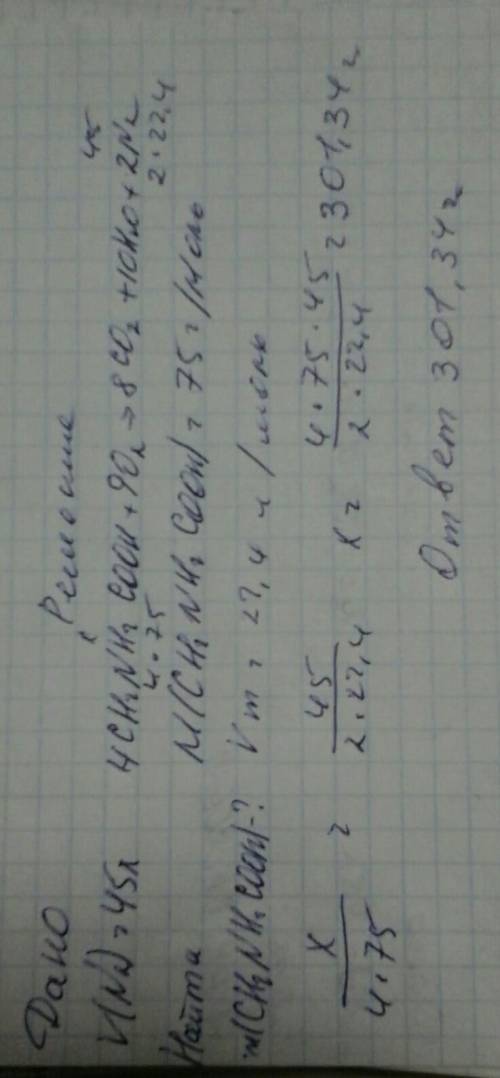 Дано
V(N2) = 45л
Найти
m(CH2NH2COOH)-?
Решение
45
4CH2NH2COOH + 9O2 → 8CO2 + 10H2O + 2N2
4·75 2·22,4
M(CH2NH2COOH) = 75 г/моль
Vm = 22,4 л/моль
x/4·75 = 45/2·22,4 x = 4·75·45/2·22,4 = 301,34 г
Ответ 301,34 г